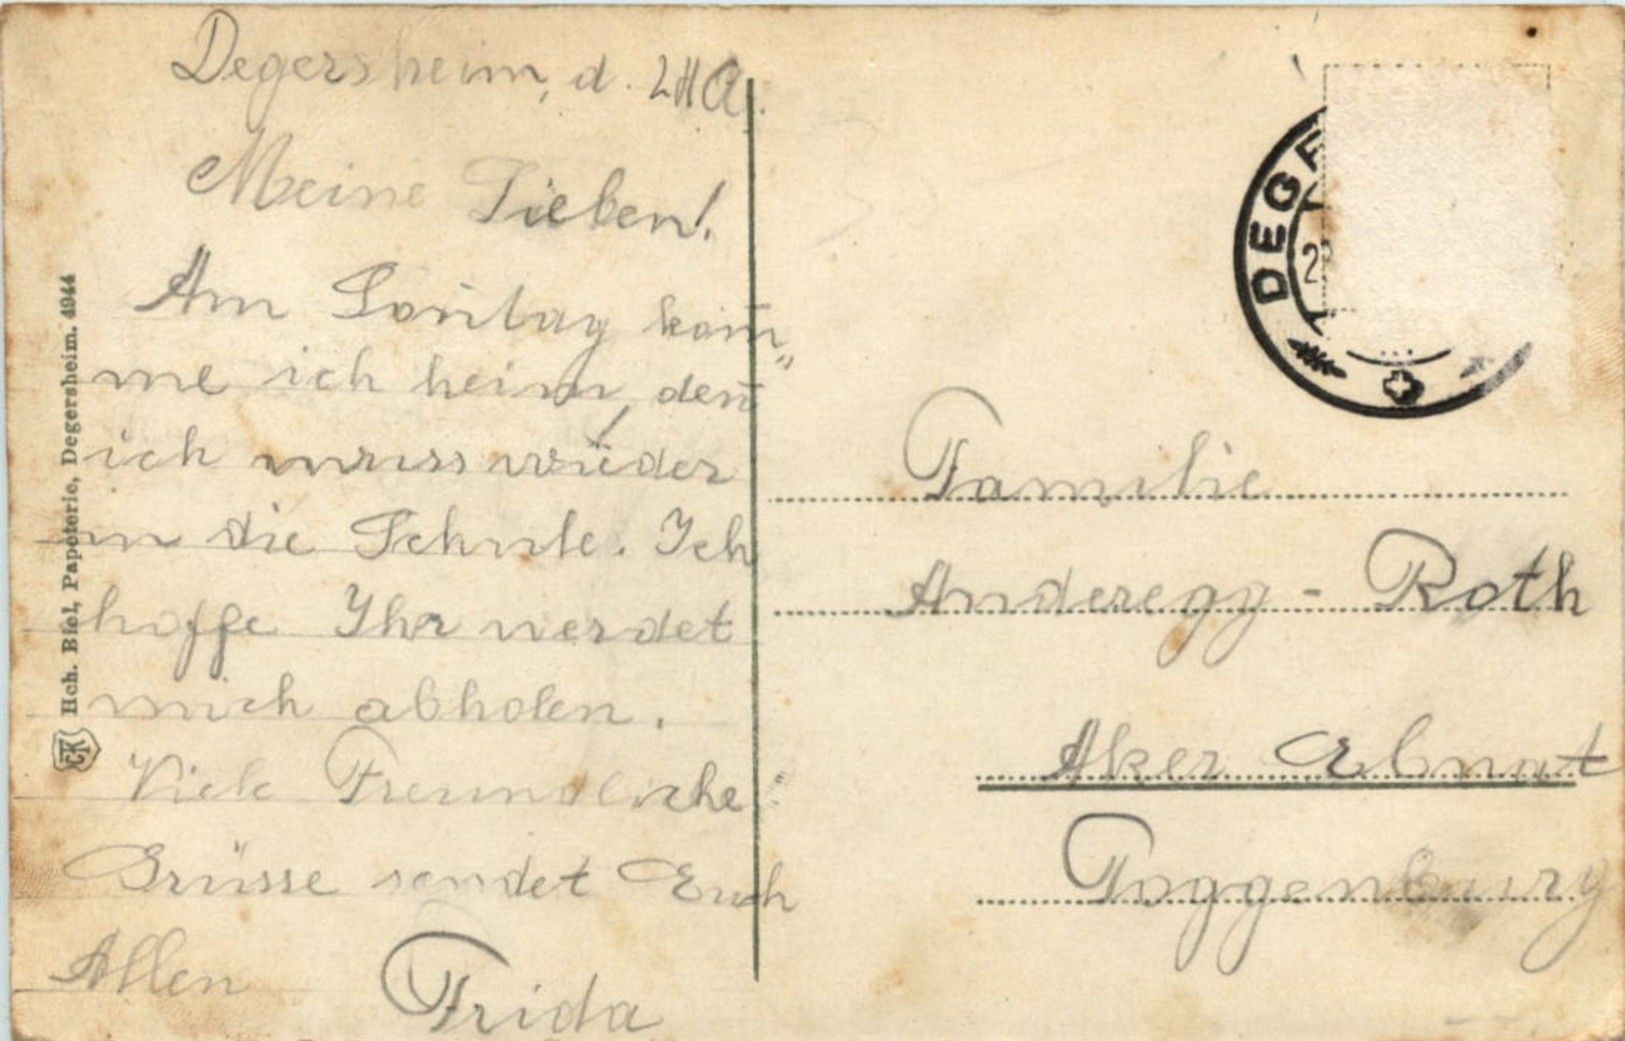 Degersheim, d.
Meine Lieben!
Am Sontag kom̅„
me ich heim, den̅
ich muss wieder
in die Schule. Ich
hoffe Ihr werdet
mich abholen.
Viele Freundliche
Grüsse sendet Euch
Allen Frida
Hch. Biel, Papeterie, Degersheim. 4944
CTK
DEGE
Familie
Anderegg - Roth
Aker Ebnat
Toggenburg